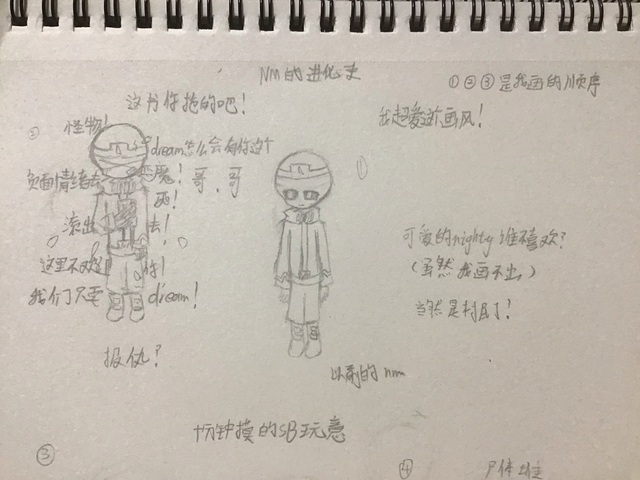 Nm的进化史
①②③是我画的顺序
这书你抢的吧!
我超爱这画风!
②
怪物!
dream怎么会有你这个
①
负面情绪去
恶魔!哥,哥
西!
滚出
去!
可爱的nighty谁不喜欢?
这里不欢迎
你!
(虽然我画不出)
我们只要
dream!
当然是利自了!
报仇?
以前的nm
十分钟摸的SB玩意
③
④
尸体堆